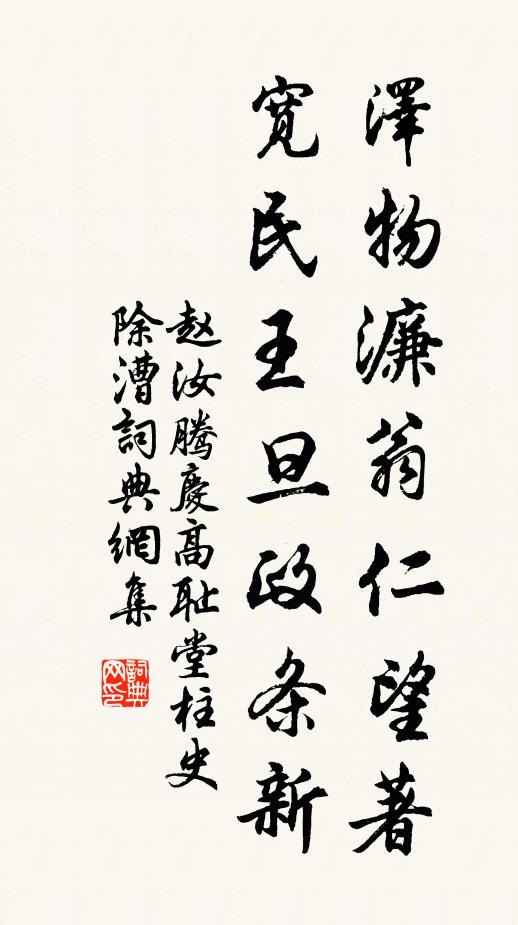 澤物濂翁仁望著
寛民王旦政条新
赵汝腾慶高耻堂柱史
除漕詞典網集
詞典
网印